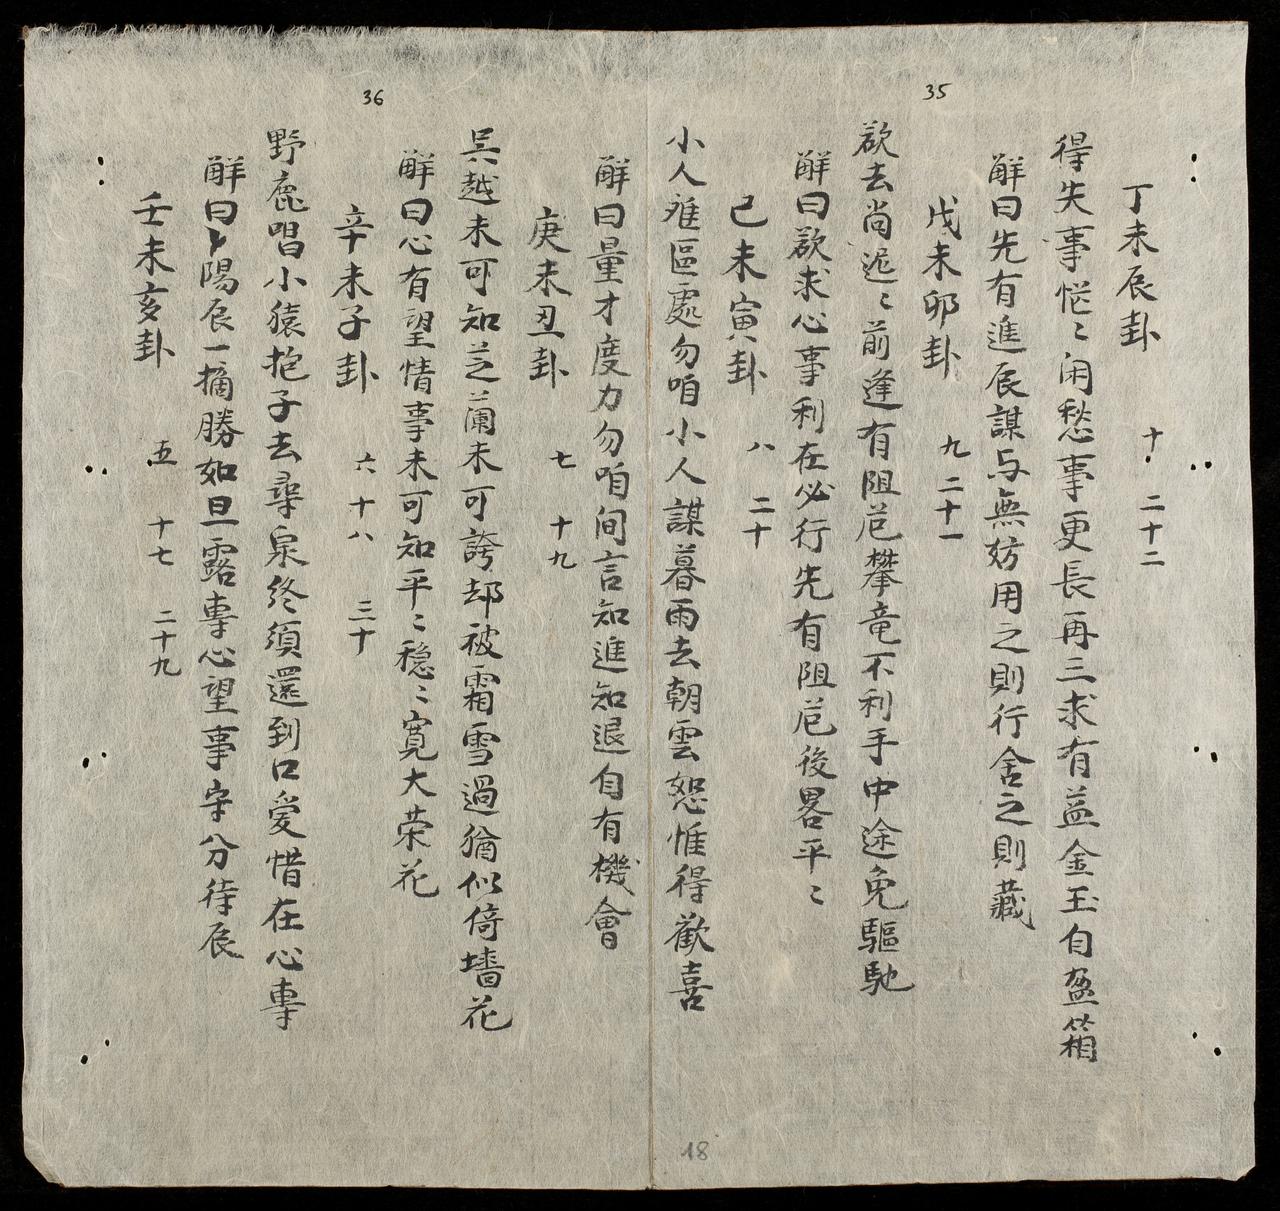 35
丁未辰卦 十 二十二
得失事忙〻閑愁事更長再三求有益金玉自盈箱
解曰先有進辰謀与無妨用之則行舍之則藏
戊未卯卦 九 二十一
欲去尚遲〻前逢有阻厄攀竜不利手中途免驅馳
解曰欲求心事利在必行先有阻厄後畧平〻
己未寅卦 八 二十
小人难區處勿咱小人謀暮雨去朝雲恕惟得歡喜
解曰量才度力勿咱间言知進知退自有機會
36
庚未丑卦 七 十九
呉越未可知芝蘭未可誇却被霜雪過猶似倚墻花
解曰心有望情事未可知平〻穩〻寬大荣花
辛未子卦 六 十八 三十
野鹿唱小猿抱子去尋泉終須還到口爱惜在心專
解曰陽辰一摘勝如旦露專心望事守分待辰
壬未亥卦 五 十七 二十九
18